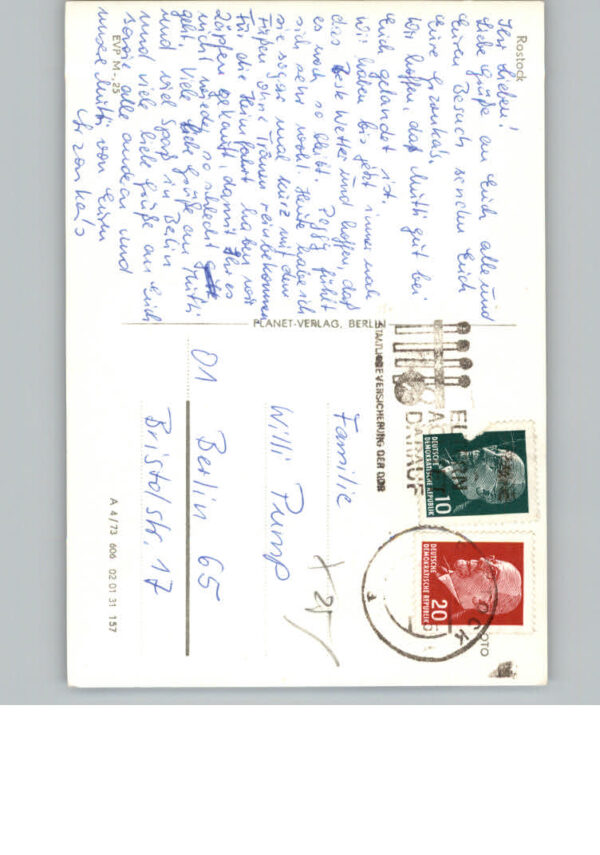 Rostock
Ihr Lieben!
Liebe Grüße an Euch alle und
Euren Besuch senden Euch
Eure Gironka's.
Wir hoffen, daß Mutti gut bei
Euch gelandet ist.
Wir haben bis jetzt immer noch
das beste Wetter und hoffen, daß
es noch so bleibt. Peggy fühlt
sich sehr wohl. Heute habe ich
sie sogar mal kurz mit den
Füßen ohne Tränen reinbekommen
Für die Heimfahrt haben wir
Zäpfchen gekauft, damit ihr es
nicht wieder so schlecht
geht. Viele liebe Grüße an Mutti
und viel Spaß in Berlin
und viele liebe Grüße an Euch
sowie alle anderen und
unsere Mutti von Euren
Gironka's
EVP M -,25
PLANET-VERLAG, BERLIN
STAATLICHE VERSICHERUNG DER DDR
DARAUF
DEUTSCHE
DEMOKRATISCHE REPUBLIK
10
DEUTSCHE
DEMOKRATISCHE REPUBLIK
20
OCK
OTO
Familie
Willi Pump
01 Berlin 65
Bristolstr. 17
A 4/73 606 02 01 31 157